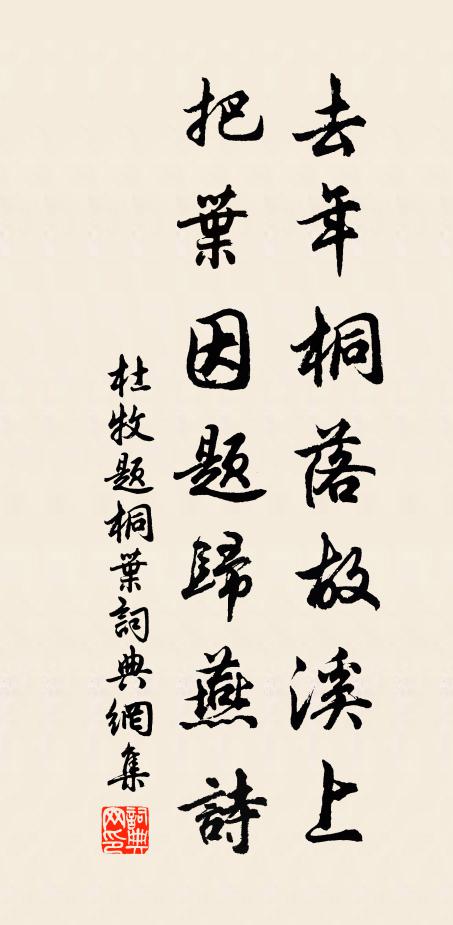 去年桐落故溪上
把葉因題歸燕詩
杜牧題桐葉詞典網集
詞典网印